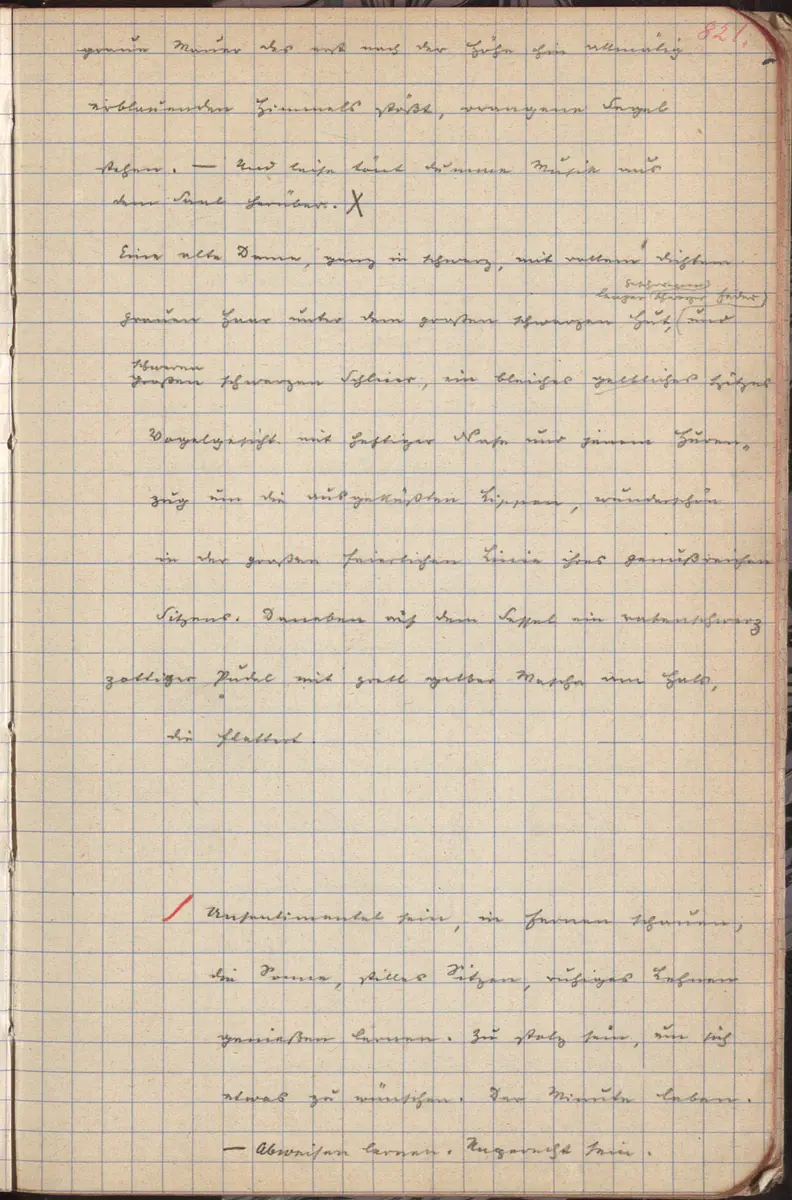 821.
graue Mauer des erst nach der Höhe hin allmälig
erblauenden Himmels stößt, orangene Segel
stehen. — Und leise tönt dumme Musik aus
dem Saal herüber. X
Eine alte Dame, ganz in schwarz, mit vollem dichtem
langer schwarzer Feder)
grauen Haar unter dem großen schwarzen Hut, (und
schweren
großen schwarzen Schleier, ein bleiches gelbliches spitzes
Vogelgesicht mit heftiger Nase und jenem Huren-
zug um die ausgeküßten Lippen, wunderschön
in der großen feierlichen Linie ihres genußreichen
Sitzens. Daneben auf dem Sessel ein rabenschwarz
zottiger Pudel mit grell gelber Masche um Hals,
die flattert.
/ Unsentimental sein, in Fernen schauen,
die Sonne, stilles Sitzen, ruhiges Lehnen
genießen lernen. Zu stolz sein, um sich
etwas zu wünschen. Der Minute leben.
— Abweisen lernen. Ungerecht sein.